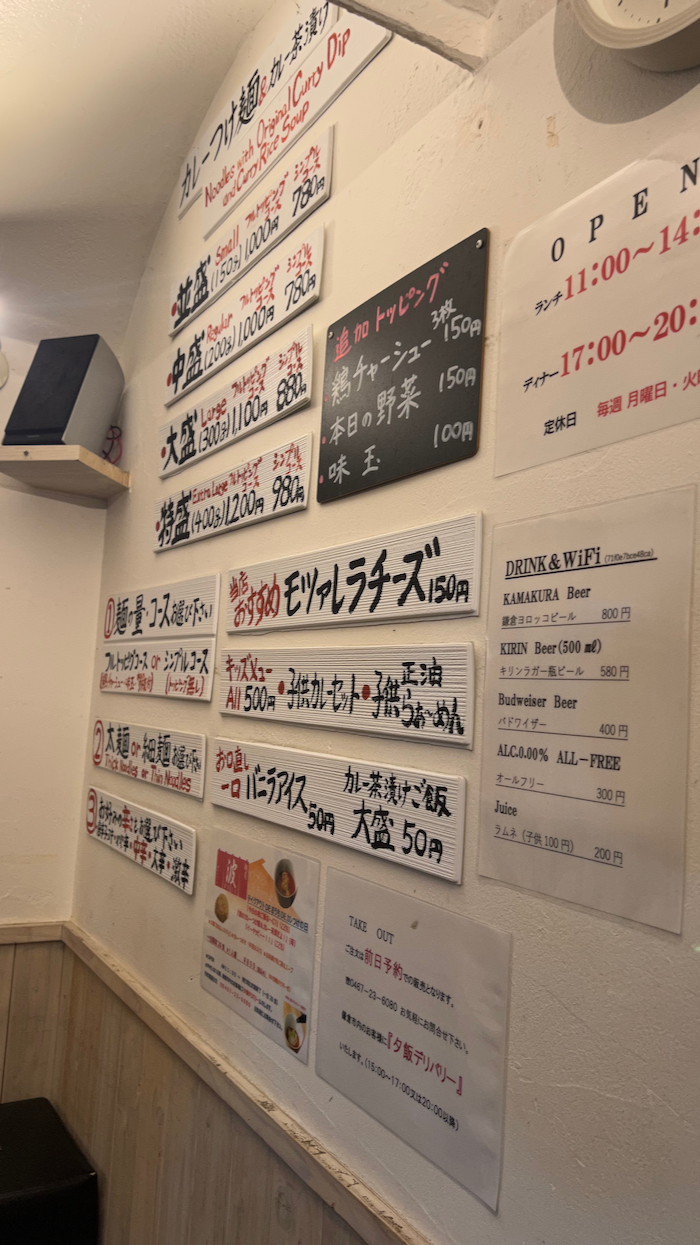 カレーつけ麺&カレー茶漬け
Noodles with Original Curry Dip
and Curry Rice Soup
並盛 Small (150g) フルトッピングコース 1,000円 シンプルコース 780円
中盛 Regular (200g) フルトッピングコース 1,000円 シンプルコース 780円
大盛 Large (300g) フルトッピングコース 1,100円 シンプルコース 880円
特盛 Extra Large (400g) フルトッピングコース 1,200円 シンプルコース 980円
追加トッピング
鶏チャーシュー 3枚 150円
本日の野菜 150円
味玉 100円
OPEN
ランチ 11:00〜14:
ディナー 17:00〜20:
定休日 毎週 月曜日・火
①麺の量・コースお選び下さい
フルトッピングコース or シンプルコース
(トッピング無し)
②太麺 or 細麺 お選び下さい
Thick Noodles or Thin Noodles
③お好みの辛さもお選び下さい
・中辛・大辛・激辛
当店おすすめ モッツァレラチーズ 150円
キッズメニュー
All 500円 ・子供カレーセット・子供正油らぁ〜めん
お口直し
一口 バニラアイス 50円
カレー茶漬けご飯
大盛 50円
DRINK&WiFi
KAMAKURA Beer
鎌倉ヨロッコビール 800円
KIRIN Beer(500 ㎖)
キリンラガー瓶ビール 580円
Budweiser Beer
バドワイザー 400円
ALC.0.00% ALL-FREE
オールフリー 300円
Juice
ラムネ (子供 100円) 200円
波
TAKE OUT
ご注文は前日予約での販売となります。
☎0467-23-6080 お気軽にお問合せ下さい。
鎌倉市内のお客様に『夕飯デリバリー』
いたします。(15:00〜17:00又は20:00以降)